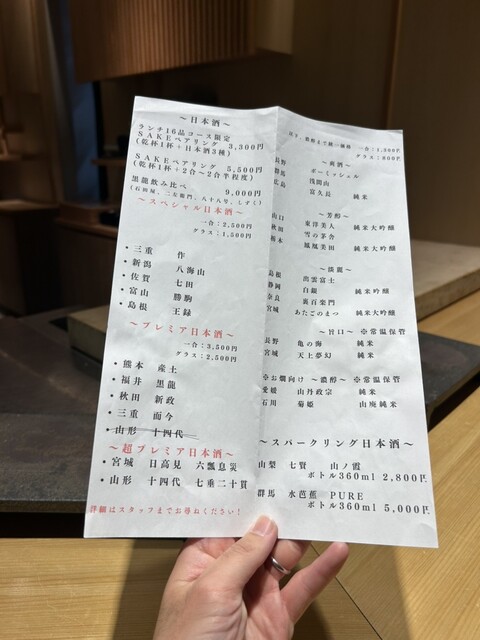 ～日本酒～
ランチ16品コース限定
SAKEペアリング 3,300円
(乾杯1杯＋日本酒3種)
SAKEペアリング 5,500円
(乾杯1杯＋2合～2合半程度)
黒龍飲み比べ 9,000円
(石田屋、二左衛門、八十八号、しずく)
～スペシャル日本酒～
一合:2,500円
グラス:1,500円
・三重 作
・新潟 八海山
・佐賀 七田
・富山 勝駒
・島根 王録
～プレミア日本酒～
一合:3,500円
グラス:2,500円
・熊本 産土
・福井 黒龍
・秋田 新政
・三重 而今
・山形 十四代
～超プレミア日本酒～
・宮城 日高見 六瓢息災
・山形 十四代 七垂二十貫
詳細はスタッフまでお尋ねください!
一合:1,500円
グラス:800円
～爽酒～
長野 ボーミッシェル
群馬 浅間山
広島 富久長 純米
～芳醇～
山口 東洋美人 純米大吟醸
秋田 雪の茅舎
栃木 鳳凰美田 純米大吟醸
～淡麗～
島根 出雲富士
静岡 白隠 純米吟醸
奈良 裏百楽門
宮城 あたごのまつ 純米大吟醸
～旨口～ ※常温保管
長野 亀の海 純米
宮城 天上夢幻 純米
※お燗向け ～濃醇～ ※常温保管
愛媛 山丹政宗 純米
石川 菊姫 山廃純米
～スパークリング日本酒～
山梨 七賢 山ノ霞
ボトル360ml 2,800円
群馬 水芭蕉 PURE
ボトル360ml 5,000円